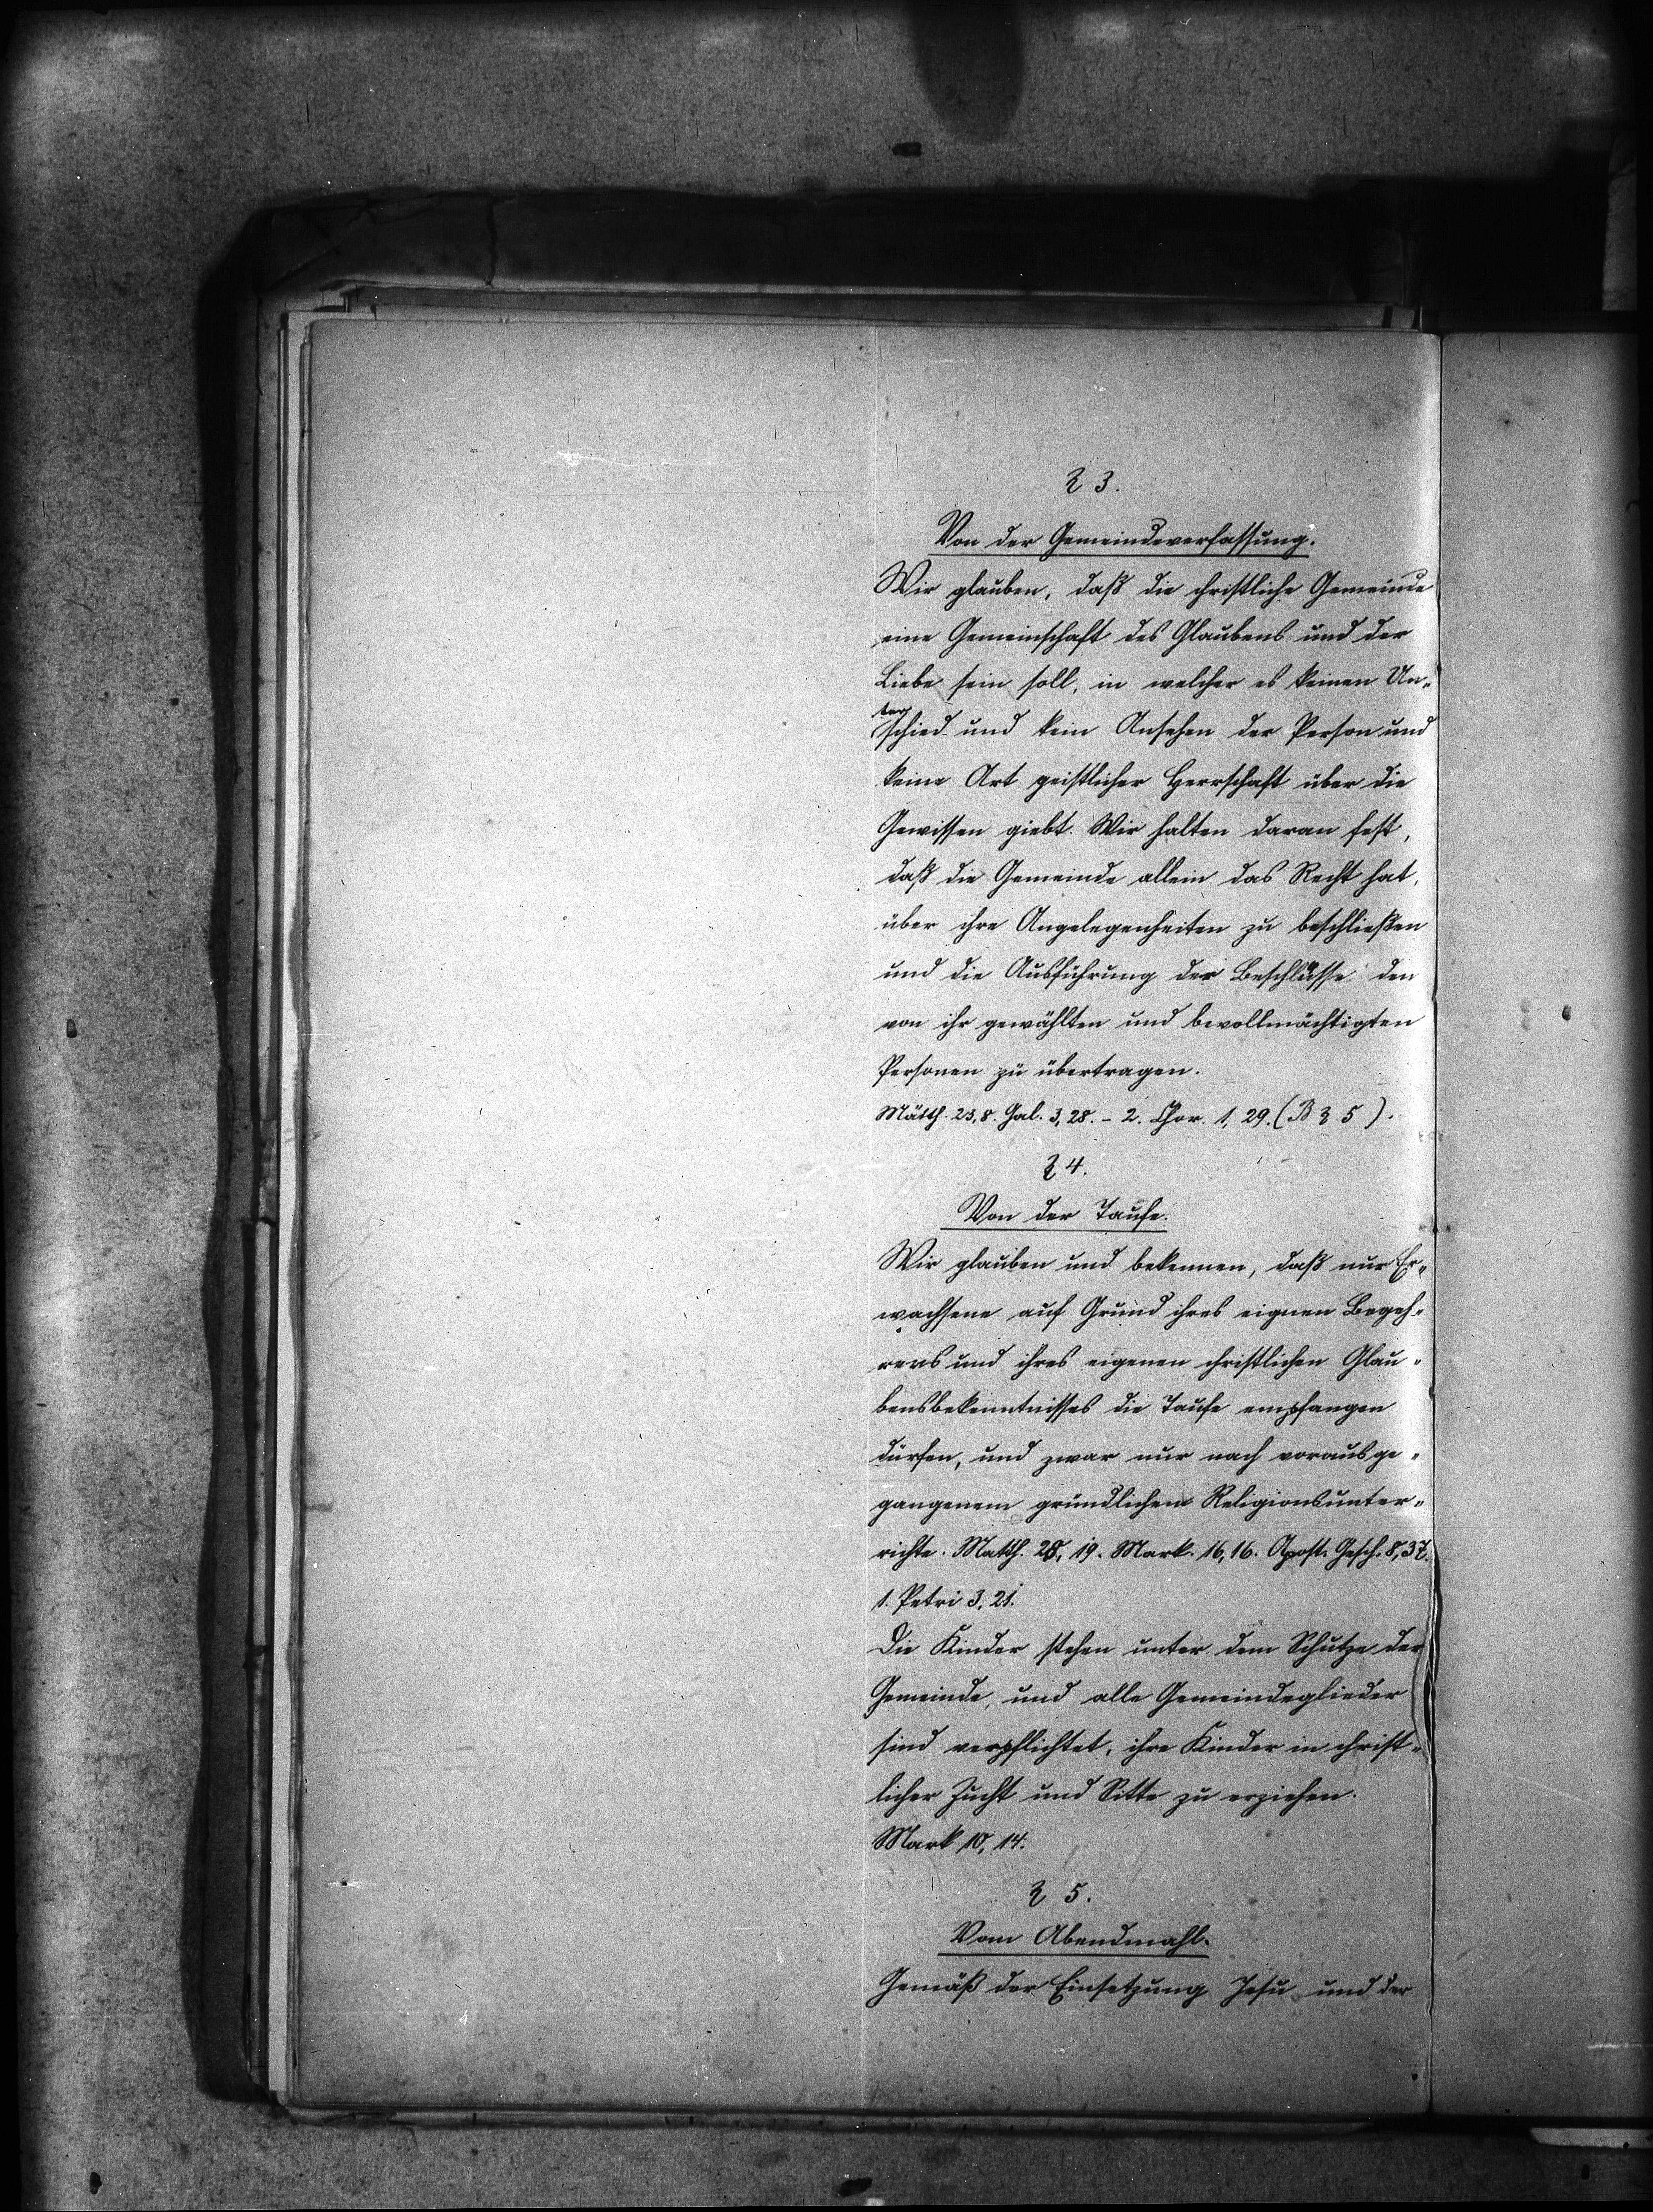 § 3.
Von der Gemeindeverfassung.
Wir glauben, daß die christliche Gemeinde
eine Gemeinschaft des Glaubens und der
Liebe sein soll, in welcher es keinen Un-
terschied und kein Ansehen der Person und
keine Art geistlicher Herrschaft über die
Gewissen giebt. Wir halten daran fest,
daß die Gemeinde allein das Recht hat,
über ihre Angelegenheiten zu beschließen
und die Ausführung der Beschlüsse den
von ihr gewählten und bevollmächtigten
Personen zu übertragen.
Matth. 23,8. Gal. 3,28. - 2. Chor. 1, 29. (B § 5).
§ 4.
Von der Taufe.
Wir glauben und bekennen, daß nur Er-
wachsene auf Grund ihres eignen Begeh-
rens und ihres eigenen christlichen Glau-
bensbekenntnisses die Taufe empfangen
dürfen, und zwar nur nach vorausge-
gangenem gründlichem Religionsunter-
richte. Matth. 28, 19. Mark. 16,16. Apost. Gesch. 8,37.
1. Petri 3, 21.
Die Kinder stehen unter dem Schutze der
Gemeinde, und alle Gemeindeglieder
sind verpflichtet, ihre Kinder in christ-
licher Zucht und Sitte zu erziehen.
Mark 10, 14.
§ 5.
Vom Abendmahl.
Gemäß der Einsetzung Jesu und der